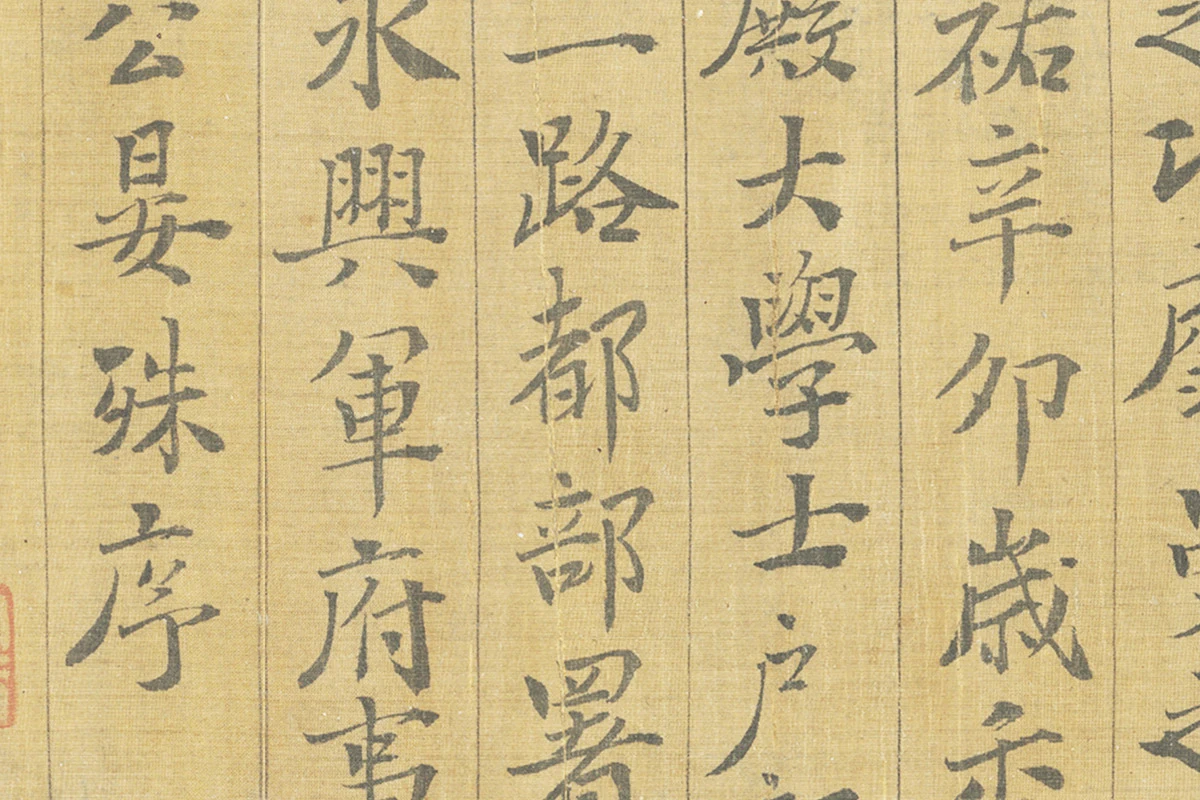 祐辛卯歲
殿大學士戶
一路都部署
永興軍府事
公晏殊序